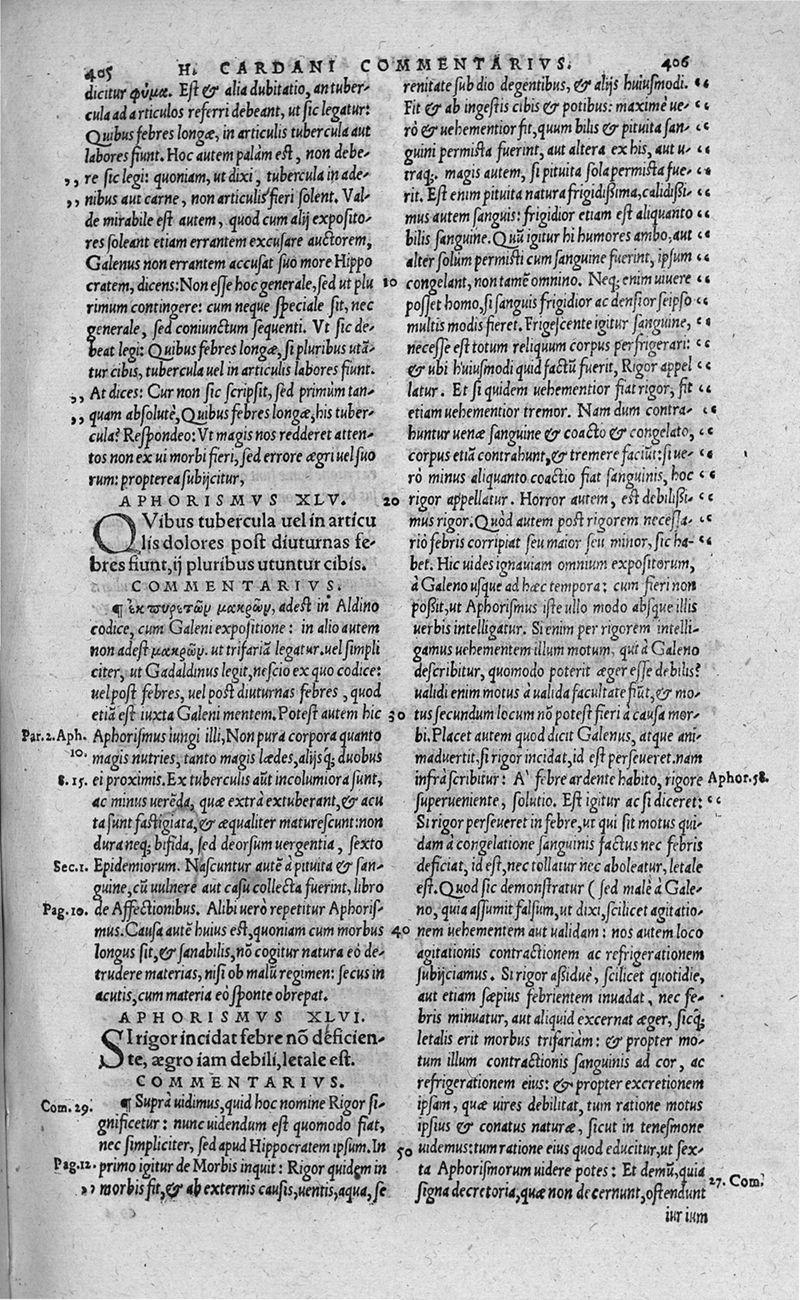 405 H. CARDANI COMMENTARIVS. 406
dicitur φύμα. Est & alia dubitatio, an tuber-
cula ad articulos referri debeant, ut sic legatur:
Quibus febres longæ, in articulis tubercula aut
labores fiunt. Hoc autem palàm est, non debe-
,, re sic legi: quoniam, ut dixi, tubercula in ade-
,, nibus aut carne, non articulis fieri solent. Val-
de mirabile est autem, quod cum alij exposito-
res soleant etiam errantem excusare auctorem,
Galenus non errantem accusat suo more Hippo
cratem, dicens: Non esse hoc generale, sed ut plu
rimum contingere: cum neque speciale sit, nec
generale, sed coniunctum sequenti. Vt sic de-
beat legi: Quibus febres longæ, si pluribus utā-
tur cibis, tubercula uel in articulis labores fiunt.
,, At dices: Cur non sic scripsit, sed primùm tan-
,, quam absolutè, Quibus febres longæ, his tuber-
cula? Respondeo: Vt magis nos redderet atten-
tos non ex ui morbi fieri, sed errore ægri uel suo
rum: propterea subijcitur,
APHORISMVS XLV.
QVibus tubercula uel in articu
lis dolores post diuturnas fe-
bres fiunt, ij pluribus utuntur cibis.
COMMENTARIVS.
¶ ἐκ πυρετῶν μακρῶν, adest in Aldino
codice, cum Galeni expositione: in alio autem
non adest μακρῶν. ut trifariā legatur. uel simpli
citer, ut Gadaldinus legit, nescio ex quo codice:
uel post febres, uel post diuturnas febres, quod
etiā est iuxta Galeni mentem. Potest autem hic
Par. 2. Aph. Aphorismus iungi illi, Non pura corpora quanto
10. magis nutries, tanto magis lædes, alijsq; duobus
8. 15. ei proximis. Ex tuberculis aūt incolumiora sunt,
ac minus uerēda, quæ extrà extuberant, & acu
ta sunt fastigiata, & æqualiter maturescunt: non
dura neq; bifida, sed deorsum uergentia, sexto
Sec. 1. Epidemiorum. Nascuntur autē à pituita & san-
guine, cū uulnere aut casu collecta fuerint, libro
Pag. 10. de Affectionibus. Alibi uerò repetitur Aphoris-
mus. Causa autē huius est, quoniam cum morbus
longus sit, & sanabilis, nō cogitur natura eò de-
trudere materias, nisi ob malū regimen: secus in
acutis, cum materia eò sponte obrepat.
APHORISMVS XLVI.
SI rigor incidat febre nō deficien-
te, ægro iam debili, letale est.
COMMENTARIVS.
Com. 29. ¶ Suprà uidimus, quid hoc nomine Rigor si-
gnificetur: nunc uidendum est quomodo fiat,
nec simpliciter, sed apud Hippocratem ipsum. In
Pag. 12. primo igitur de Morbis inquit: Rigor quidem in
,, morbis fit, & ab externis causis, uentis, aqua, se
renitate sub dio degentibus, & alijs huiusmodi. “
Fit & ab ingestis cibis & potibus: maximè ue- “
rò & uehementior fit, quum bilis & pituita san- “
guini permista fuerint, aut altera ex his, aut u- “
traq;. magis autem, si pituita sola permista fue- “
rit. Est enim pituita natura frigidissima, calidissi- “
mus autem sanguis: frigidior etiam est aliquanto “
bilis sanguine. Quū igitur hi humores ambo, aut “
alter solum permisti cum sanguine fuerint, ipsum “
10 congelant, non tamē omnino. Neq; enim uiuere “
posset homo, si sanguis frigidior ac densior seipso “
multis modis fieret. Frigescente igitur sanguine, “
necesse est totum reliquum corpus perfrigerari: “
& ubi huiusmodi quid factū fuerit, Rigor appel “
latur. Et si quidem uehementior fiat rigor, fit “
etiam uehementior tremor. Nam dum contra- “
huntur uenæ sanguine & coacto & congelato, “
corpus etiā contrahunt, & tremere faciūt: si ue- “
rò minus aliquanto coactio fiat sanguinis, hoc “
20 rigor appellatur. Horror autem, est debilissi- “
mus rigor. Quòd autem post rigorem necessa- “
riò febris corripiat seu maior seu minor, sic ha- “
bet. Hic uides ignauiam omnium expositorum,
à Galeno usque ad hæc tempora: cum fieri non
possit, ut Aphorismus iste ullo modo absque illis
uerbis intelligatur. Si enim per rigorem intelli-
gamus uehementem illum motum, qui à Galeno
describitur, quomodo poterit æger esse debilis?
ualidi enim motus à ualida facultate fiūt, & mo-
30 tus secundum locum nō potest fieri à causa mor-
bi. Placet autem quod dicit Galenus, atque ani-
maduertit. si rigor incidat, id est perseueret. nam
infrà scribitur: A' febre ardente habito, rigore Aphor. 58.
superueniente, solutio. Est igitur ac si diceret: “
Si rigor perseueret in febre, ut qui sit motus qui-
dam à congelatione sanguinis factus nec febris
deficiat, id est, nec tollatur nec aboleatur, letale
est. Quod sic demonstratur (sed malè à Gale-
no, quia assumit falsum, ut dixi, scilicet agitatio-
40 nem uehementem aut ualidam: nos autem loco
agitationis contractionem ac refrigerationem
subijciamus. Si rigor assiduè, scilicet quotidie,
aut etiam sæpius febrientem inuadat, nec fe-
bris minuatur, aut aliquid excernat æger, sicq;
letalis erit morbus trifariàm: & propter mo-
tum illum contractionis sanguinis ad cor, ac
refrigerationem eius: & propter excretionem
ipsam, quæ uires debilitat, tum ratione motus
ipsius & conatus naturæ, sicut in tenesmone
50 uidemus: tum ratione eius quod educitur, ut sex-
ta Aphorismorum uidere potes: Et demū, quia
signa decretoria, quæ non decernunt, ostendunt 27. Com.
iur ium